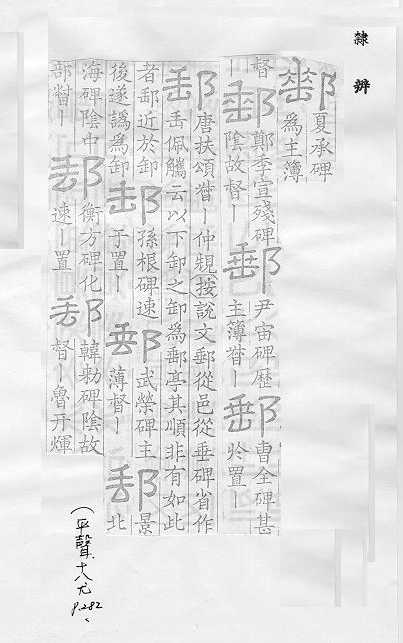 隸辨
郵夏承碑為主簿
督丨郵鄭季宣殘碑陰故督丨郵尹宙碑歷主簿督丨郵曹全碑甚於置丨
郵唐扶頌督丨仲䚈按說文郵從邑從垂碑省作
郵佩觿云以下卸之卸為郵亭其順非有如此
者郵近於卸後遂譌為卸郵孫根碑速于置丨郵武榮碑主薄督丨郵北
海景碑陰中部督丨郵衡方碑化速丨置郵韓勑碑陰故督丨魯开煇
(平聲十八尤
P.282